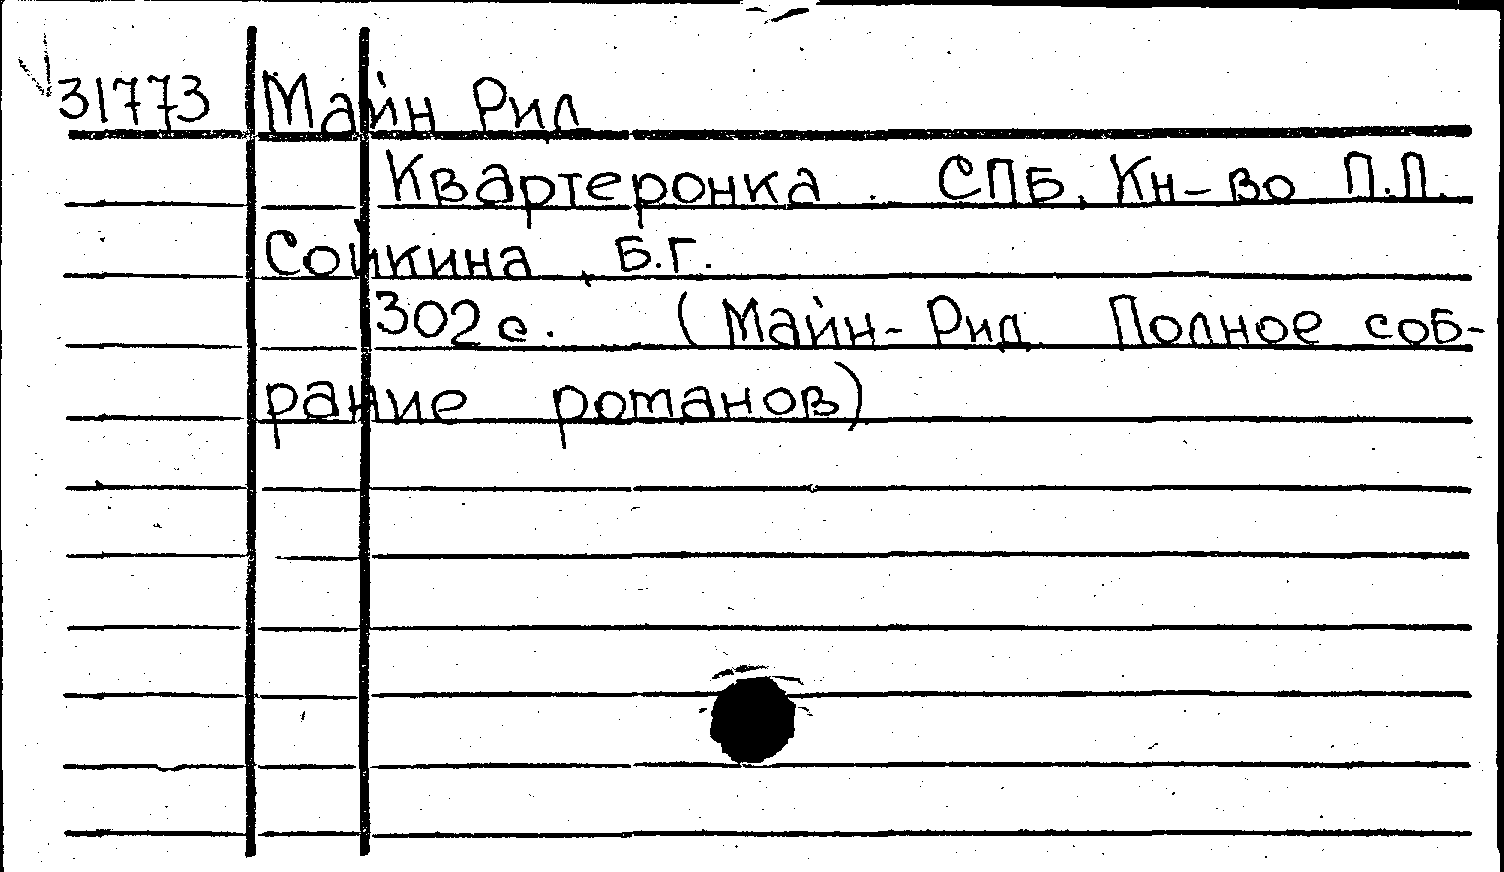 31773 Майн Рид
Квартеронка. СПБ, Кн-во П.П.
Сойкина, Б.Г.
302 с. (Майн-Рид. Полное соб-
рание романов)